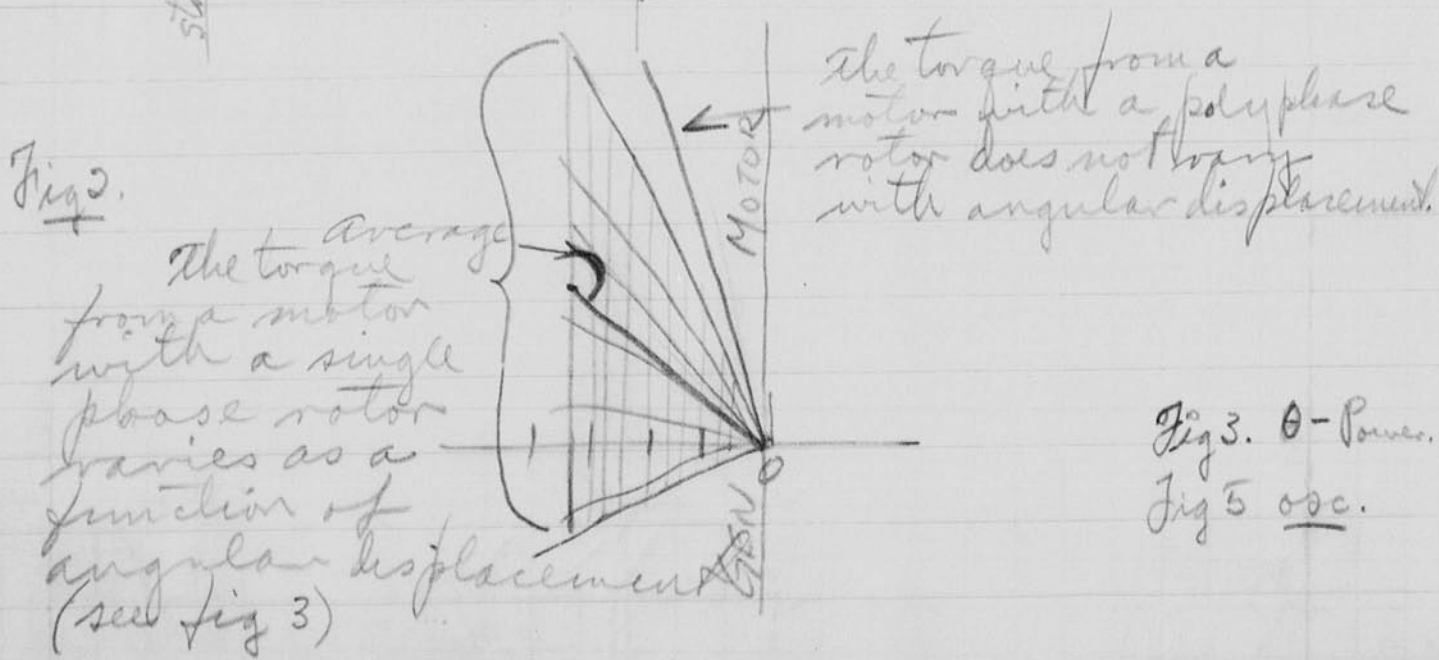 Fig 2.
average
The torque
from a motor
with a single
phase rotor
varies as a
function of
angular displacement
(see fig 3)
MOTOR
The torque from a
motor with a polyphase
rotor does not vary
with angular displacement.
O
GEN
Fig 3. θ - Power.
Fig 5 osc.